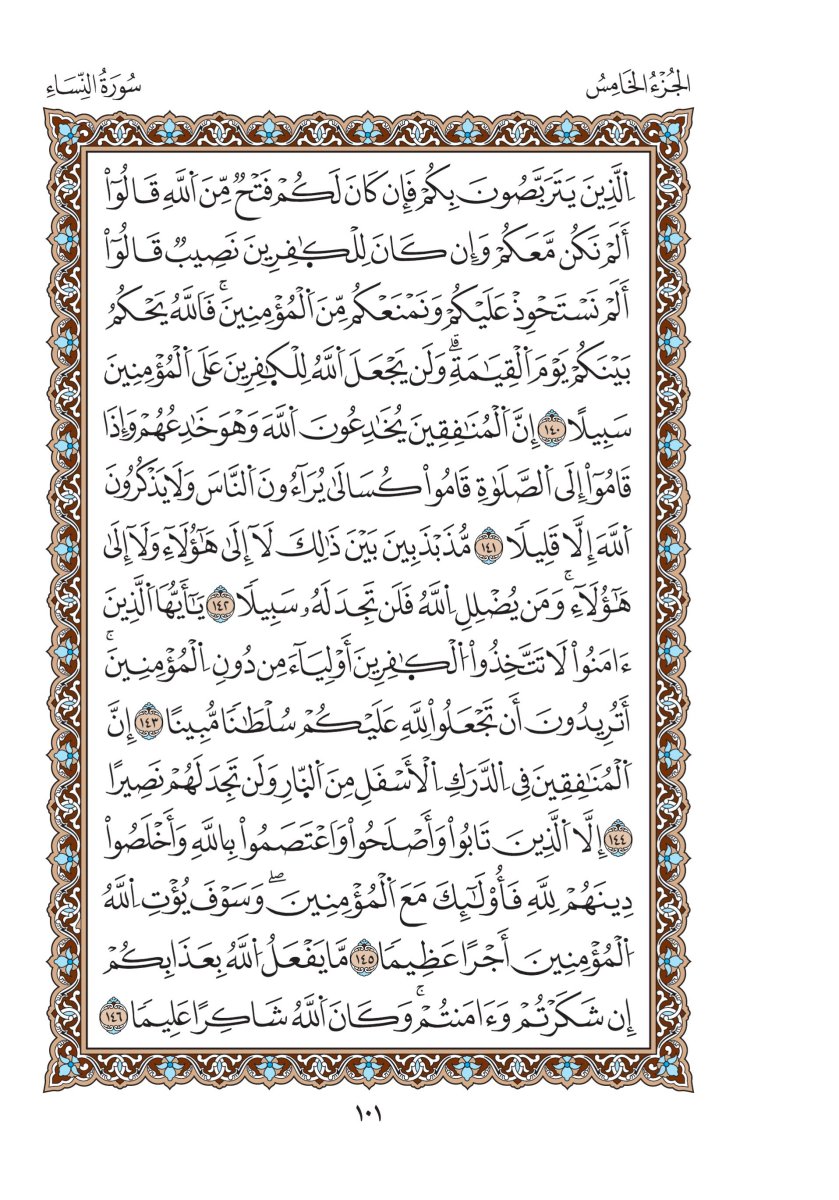 الجُزْءُ الخَامِسُ
سُورَةُ النِّسَاءِ
اِ۬لَّذِينَ يَتَرَبَّصُونَ بِكُمْ فَإِن كَانَ لَكُمْ فَتْحٞ مِّنَ اَ۬للَّهِ قَالُوٓاْ
أَلَمْ نَكُن مَّعَكُمْ وَإِن كَانَ لِلْكٰ۪فِرِينَ نَصِيبٞ قَالُوٓاْ
أَلَمْ نَسْتَحْوِذْ عَلَيْكُمْ وَنَمْنَعْكُم مِّنَ اَ۬لْمُؤْمِنِينَۚ فَاللَّهُ يَحْكُمُ
بَيْنَكُمْ يَوْمَ اَ۬لْقِيَٰمَةِۗ وَلَن يَجْعَلَ اَ۬للَّهُ لِلْكٰ۪فِرِينَ عَلَى اَ۬لْمُؤْمِنِينَ
سَبِيلًا ١٤٠ إِنَّ اَ۬لْمُنَٰفِقِينَ يُخَٰدِعُونَ اَ۬للَّهَ وَهْوَ خَٰدِعُهُمْ وَإِذَا
قَامُوٓاْ إِلَى اَ۬لصَّلَوٰةِ قَامُواْ كُسَالَىٰ يُرَآءُونَ اَ۬لنَّاسَ وَلَا يَذْكُرُونَ
اَ۬للَّهَ إِلَّا قَلِيلًا ١٤١ مُّذَبْذَبِينَ بَيْنَ ذَٰلِكَ لَآ إِلَىٰ هَٰٓؤُلَآءِ وَلَآ إِلَىٰ
هَٰٓؤُلَآءِۚ وَمَن يُضْلِلِ اِ۬للَّهُ فَلَن تَجِدَ لَهُۥ سَبِيلًا ١٤٢ يَٰٓأَيُّهَا اَ۬لَّذِينَ
ءَامَنُواْ لَا تَتَّخِذُواْ اُ۬لْكٰ۪فِرِينَ أَوْلِيَآءَ مِن دُونِ اِ۬لْمُؤْمِنِينَۚ
أَتُرِيدُونَ أَن تَجْعَلُواْ لِلَّهِ عَلَيْكُمْ سُلْطَٰنٗا مُّبِينًا ١٤٣ إِنَّ
اَ۬لْمُنَٰفِقِينَ فِي اِ۬لدَّرَكِ اِ۬لْأَسْفَلِ مِنَ اَ۬لنّ۪ارِ وَلَن تَجِدَ لَهُمْ نَصِيرًا
١٤٤ إِلَّا اَ۬لَّذِينَ تَابُواْ وَأَصْلَحُواْ وَاعْتَصَمُواْ بِاللَّهِ وَأَخْلَصُواْ
دِينَهُمْ لِلَّهِ فَأُوْلَٰٓئِكَ مَعَ اَ۬لْمُؤْمِنِينَۖ وَسَوْفَ يُؤْتِ اِ۬للَّهُ
اُ۬لْمُؤْمِنِينَ أَجْرًا عَظِيمٗا ١٤٥ مَّا يَفْعَلُ اُ۬للَّهُ بِعَذَابِكُمْ
إِن شَكَرْتُمْ وَءَامَنتُمْۚ وَكَانَ اَ۬للَّهُ شَاكِرًا عَلِيمٗا ١٤٦
١٠١